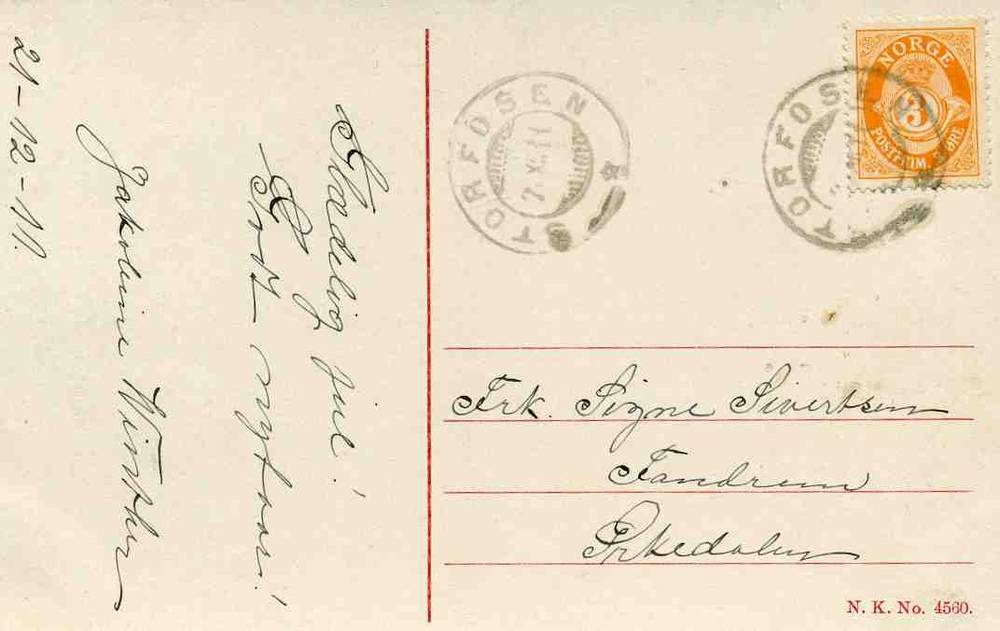 21-12-11.
Glædelig jul!
Godt nytaar!
Jakobine Winther
STORFOSEN
2. XII. 11
STORFOSEN
NORGE
3
POSTFRIM. 3 ØRE
Frk. Signe Sivertsen
Fandrem
Orkedalen
N. K. No. 4560.